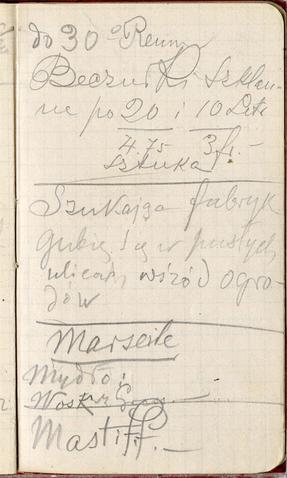 do 30° Reum
Beczułki szklan-
ne po 20 i 10 Litr
4.75 3 fr.-
sztuka
Szukając fabryk
gubię się w pustych
ulicach wśród ogro-
dów
Marseile
Mydło i
Wosk
Mastiff.-